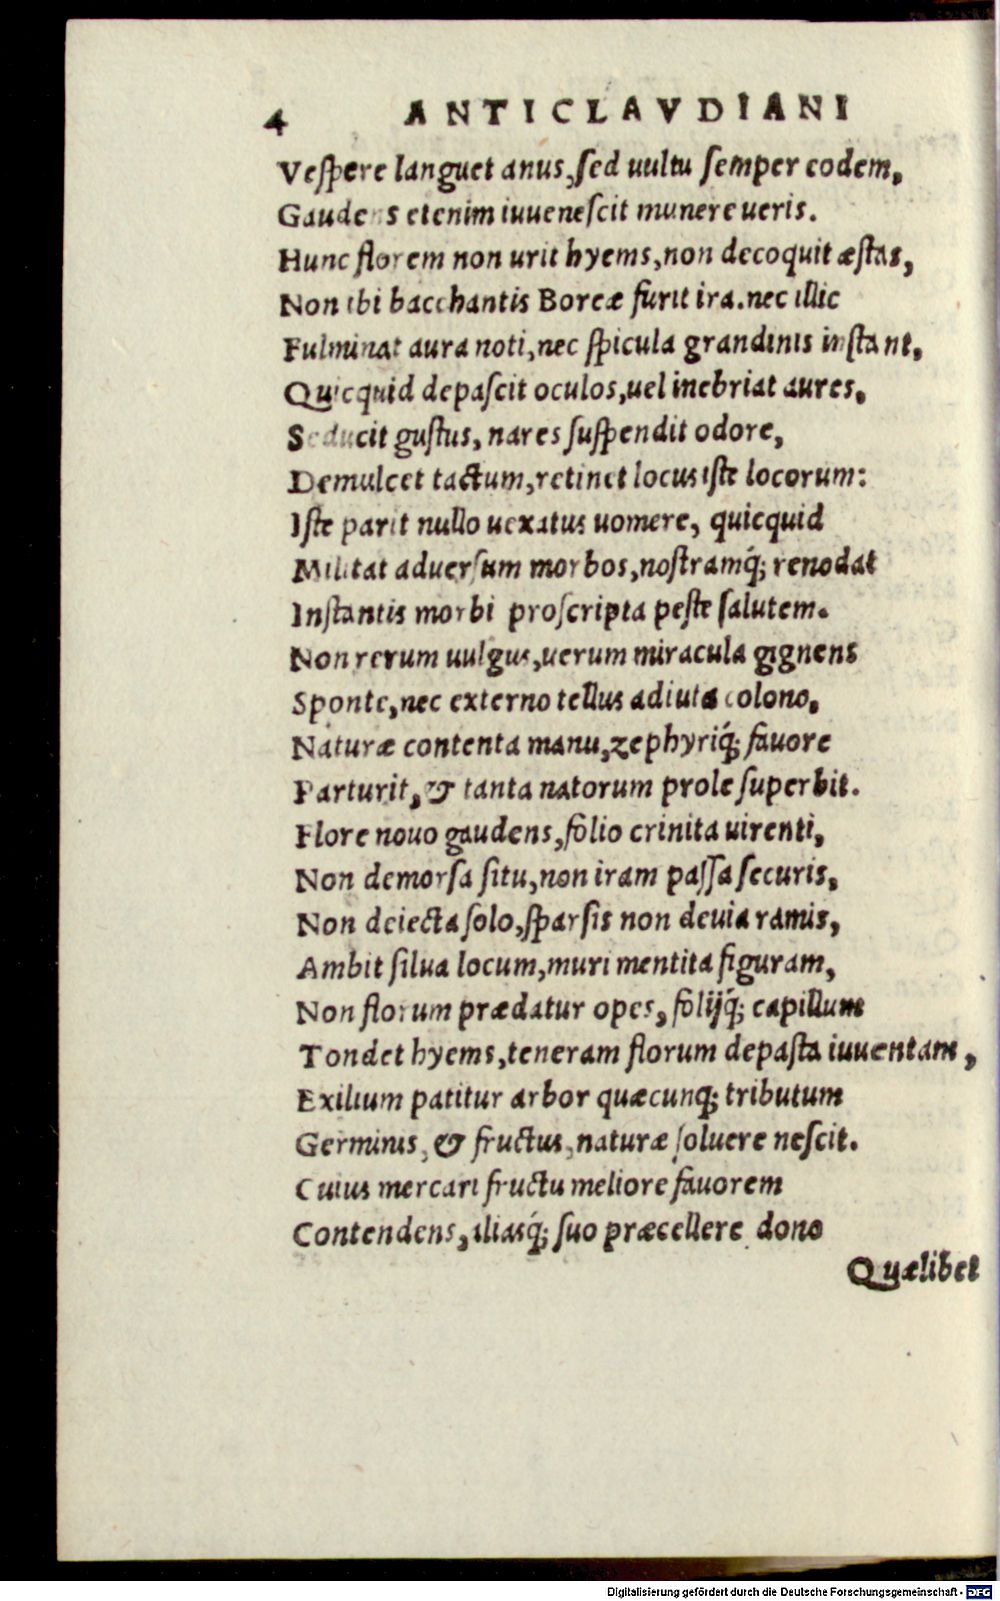 4 ANTICLAVDIANI
Veſpere languet anus, ſed uultu ſemper eodem,
Gaudens etenim iuueneſcit munere ueris.
Hunc florem non urit hyems, non decoquit æſtas,
Non ibi bacchantis Boreæ furit ira. nec illic
Fulminat aura noti, nec ſpicula grandinis inſtant,
Quicquid depaſcit oculos, uel inebriat aures,
Seducit guſtus, nares ſuſpendit odore,
Demulcet tactum, retinet locus iſte locorum:
Iſte parit nullo uexatus uomere, quicquid
Militat aduerſum morbos, noſtramq́; renodat
Inſtantis morbi proſcripta peſte ſalutem.
Non rerum uulgus, uerum miracula gignens
Sponte, nec externo tellus adiuta colono,
Naturæ contenta manu, zephyriq́; fauore
Parturit, & tanta natorum prole ſuperbit.
Flore nouo gaudens, folio crinita uirenti,
Non demorſa ſitu, non iram paſſa ſecuris,
Non deiecta ſolo, ſparſis non deuia ramis,
Ambit ſilua locum, muri mentita figuram,
Non florum prædatur opes, folijq́; capillum
Tondet hyems, teneram florum depaſta iuuentam,
Exilium patitur arbor quæcunq; tributum
Germinis, & fructus, naturæ ſoluere neſcit.
Cuius mercari fructu meliore fauorem
Contendens, aliasq́; ſuo præcellere dono
Quælibet
Digitalisierung gefördert durch die Deutsche Forschungsgemeinschaft - DFG